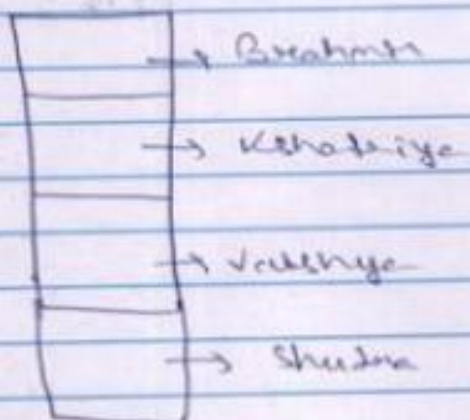 → Brahmin
→ Kshatriya
→ Vaishya
→ Shudra